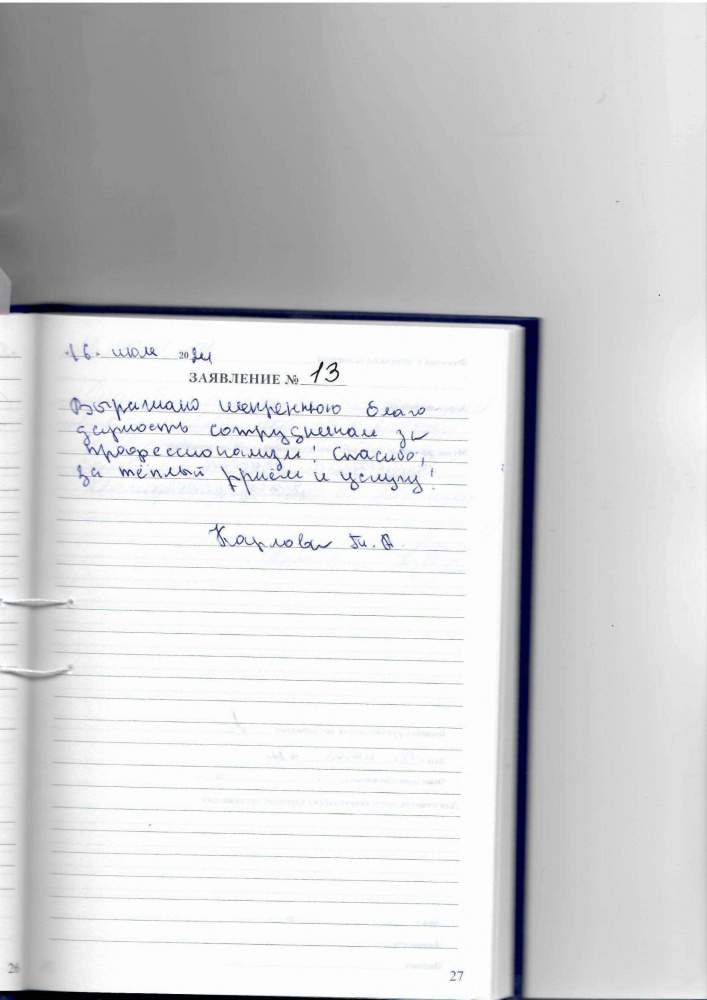 «16» июля 2024
ЗАЯВЛЕНИЕ № 13
Выражаю искреннюю благо
дарность сотрудникам за
профессионализм! Спасибо,
за тёплый приём и услугу!
Карлова
26
27